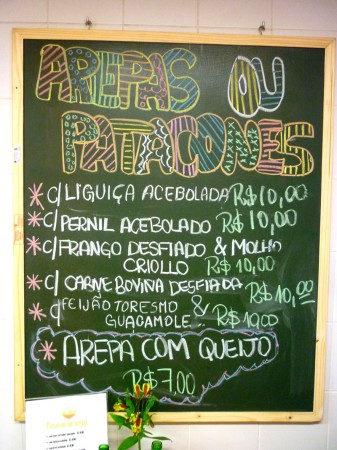 AREPAS OU
PATACONES
* C/ LIGUIÇA ACEBOLADA R$10,00
* C/ PERNIL ACEBOLADO R$10,00
* C/ FRANGO DESFIADO & MOLHO
CRIOLLO R$10,00
* C/ CARNE BOVINA DESFIADA R$10,00
* C/ FEIJÃO TORESMO &
GUACAMOLE.. R$10,00
* AREPA COM QUEIJO
R$7.00